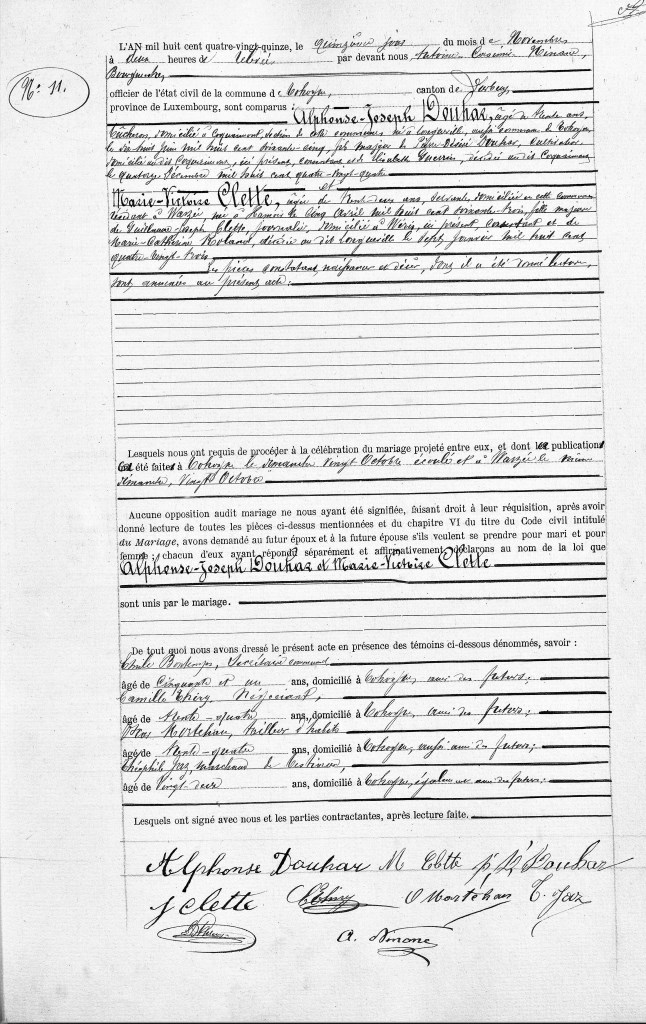 N° 11.
L'AN mil huit cent quatre-vingt-quinze, le quinzième jour du mois de Novembre
à deux heures de relevée par devant nous Antoine
Bourgmestre,
officier de l'état civil de la commune de Tohogne, canton de Durbuy,
province de Luxembourg, sont comparus : Alphonse-Joseph Douhar, âgé de trente ans,
domicilié à section de cette commune, né à Longueville, aussi commune de Tohogne
le dix huit juin mil huit cent soixante-cinq, fils majeur de Pierre Désiré Douhar, cultivateur,
domicilié au dit ici présent, consentant et de Elisabeth décédée au dit
le quatorze Décembre mil huit cent quatre-vingt-quatre
et
Marie-Victoire Clette, âgée de trente-deux ans, servante, domiciliée en cette commune
résidant à Warzée née à le cinq avril mil huit cent soixante-trois, fille majeure
de Guillaume-Joseph Clette, journalier, domicilié à Wéris, ici présent, consentant et de
Marie-Catherine Roland, décédée au dit Longueville le sept janvier mil huit cent
quatre vingt-trois.
Les pièces constatant naissances et décès, dont il a été donné lecture,
sont annexées au présent acte :
Lesquels nous ont requis de procéder à la célébration du mariage projeté entre eux, et dont les publications
ont été faites à Tohogne le dimanche vingt Octobre écoulé et à Warzée le même
dimanche, vingt Octobre
Aucune opposition audit mariage ne nous ayant été signifiée, faisant droit à leur réquisition, après avoir
donné lecture de toutes les pièces ci-dessus mentionnées et du chapitre VI du titre du Code civil intitulé
du Mariage, avons demandé au futur époux et à la future épouse s'ils veulent se prendre pour mari et pour
femme ; chacun d'eux ayant répondu séparément et affirmativement, déclarons au nom de la loi que
Alphonse-Joseph Douhar et Marie-Victoire Clette
sont unis par le mariage.
De tout quoi nous avons dressé le présent acte en présence des témoins ci-dessous dénommés, savoir :
Bontemps, Secrétaire communal
âgé de Cinquante et un ans, domicilié à Tohogne, ami des futurs ;
Camille Thiry, Négociant,
âgé de trente-quatre ans, domicilié à Tohogne, ami des futurs ;
Oscar Mortehan, tailleur d'habits
âgé de trente-quatre ans, domicilié à Tohogne, aussi ami des futurs ;
Théophile marchand de
âgé de vingt-deux ans, domicilié à Tohogne, également ami des futurs ;
Lesquels ont signé avec nous et les parties contractantes, après lecture faite.
Alphonse Douhar M Clette p. D. Douhar
J Clette CThiry O Mortéhan T.
A. Ninane